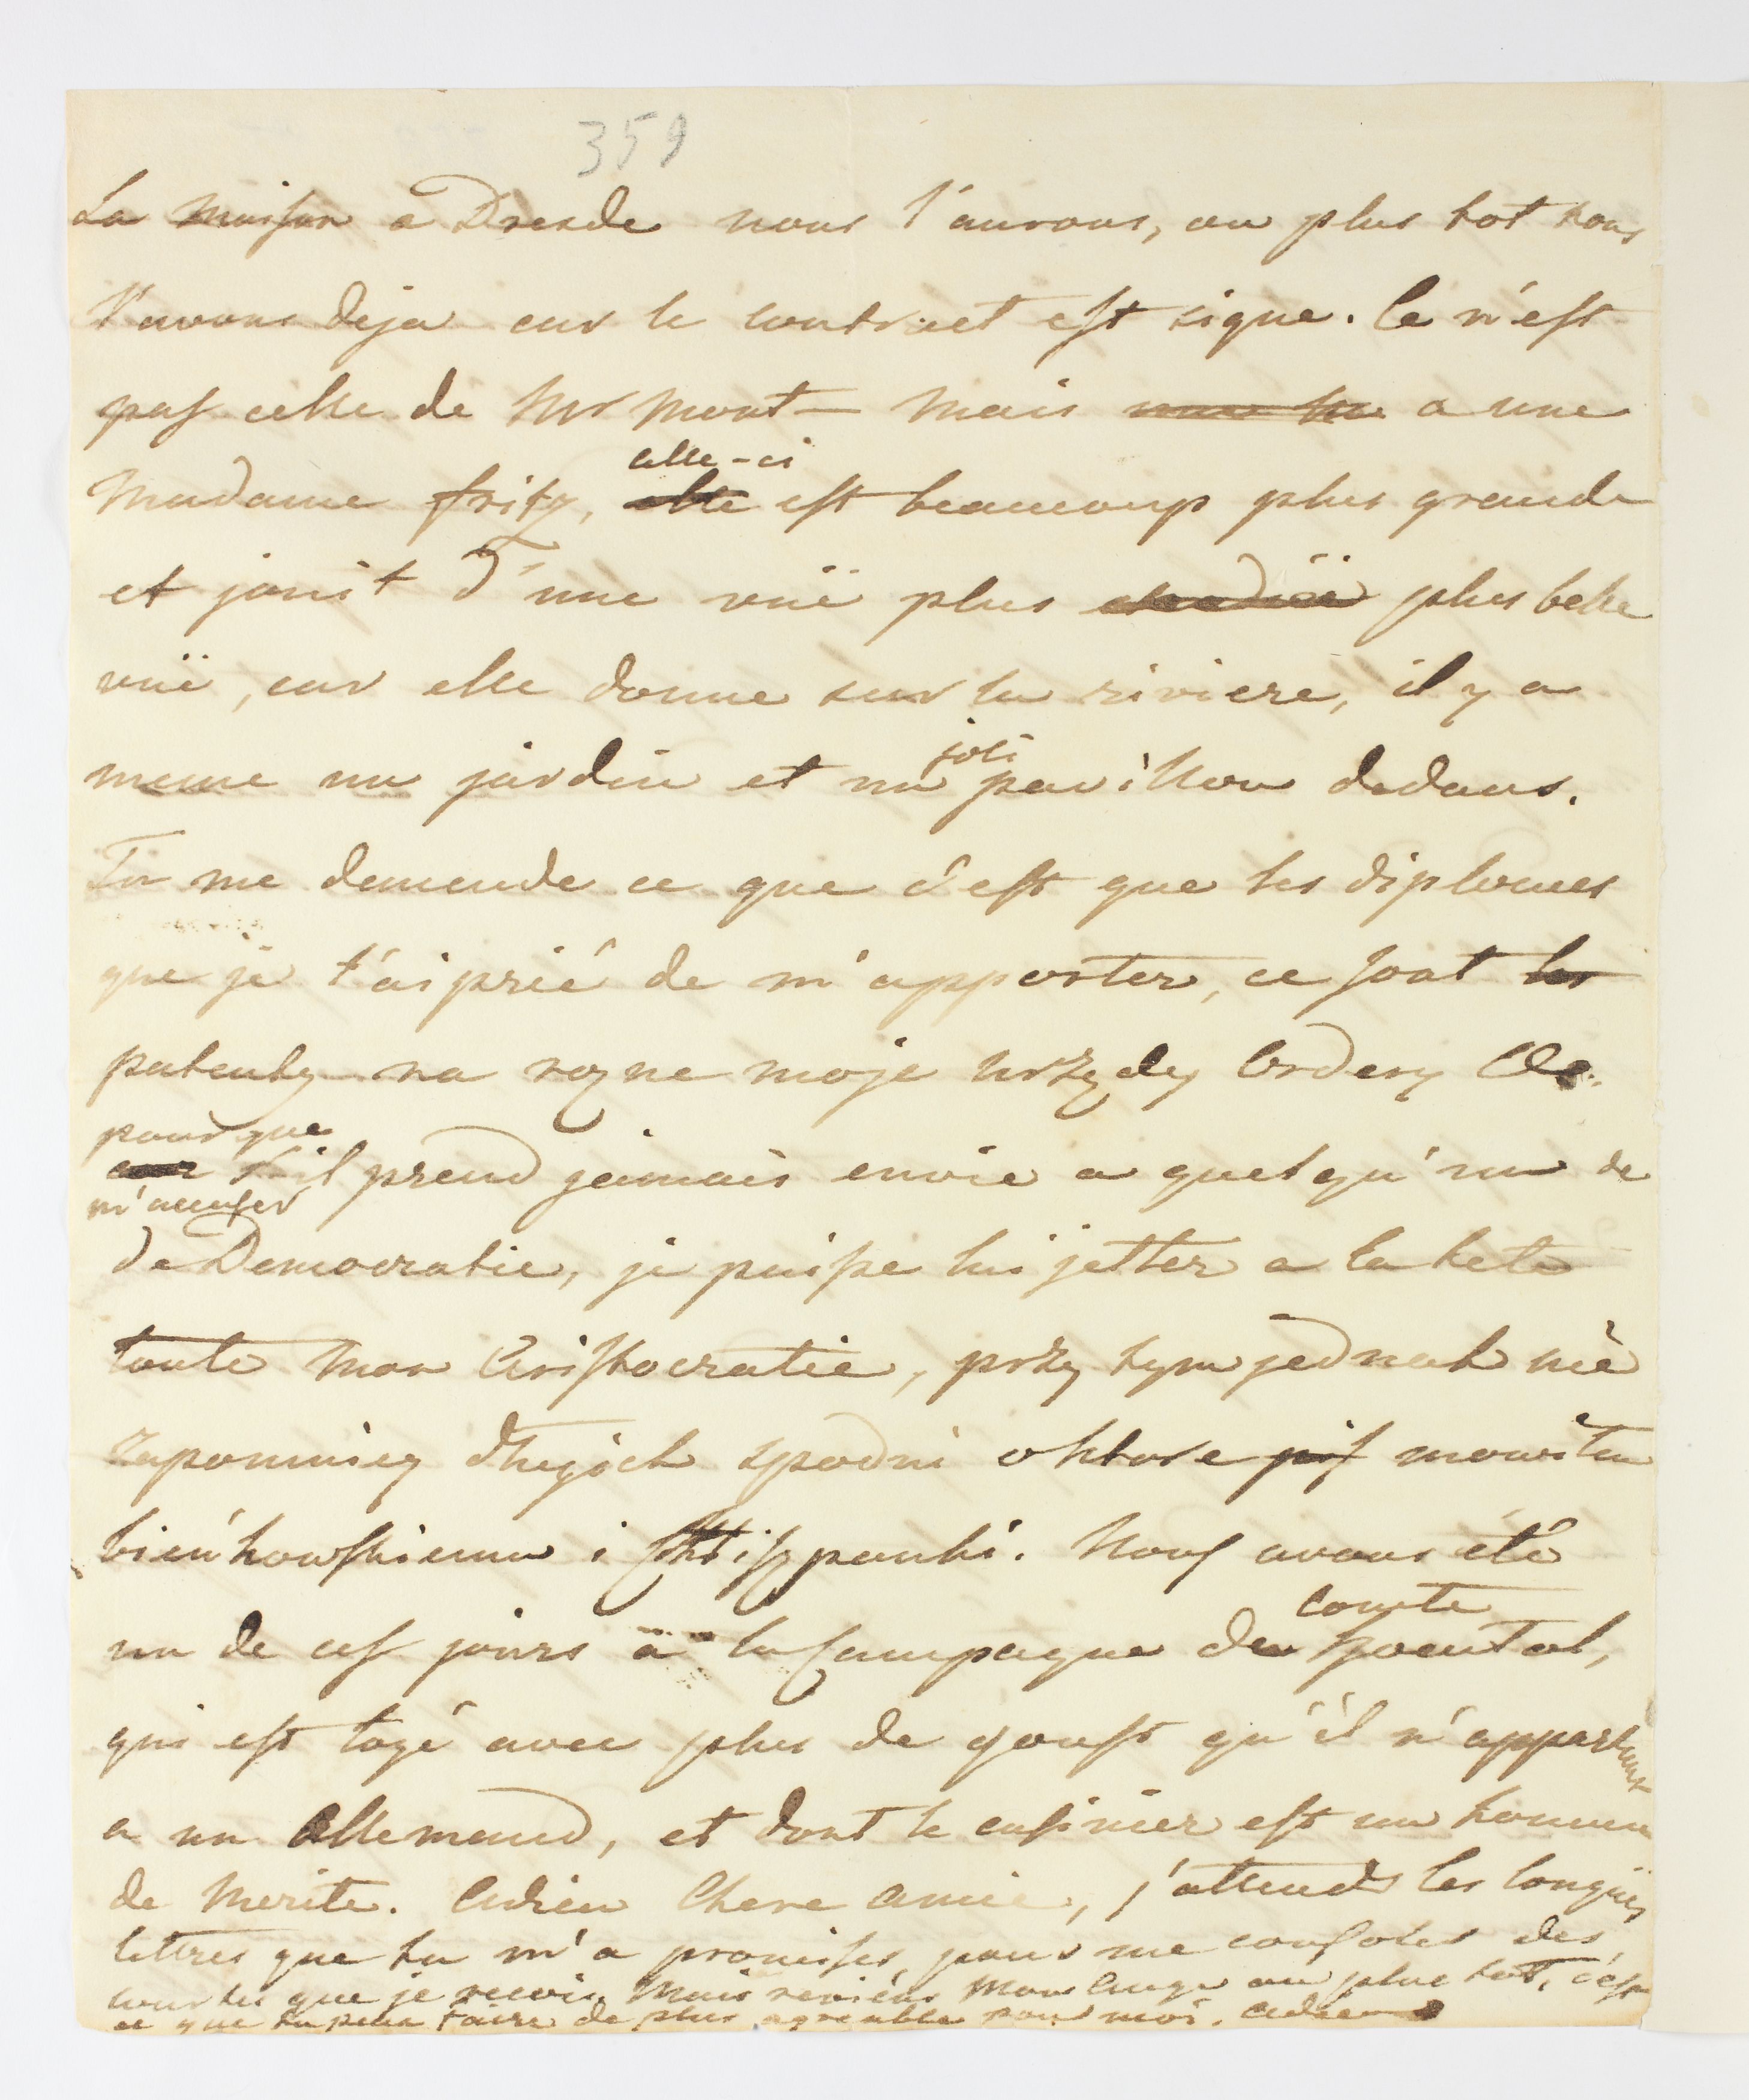 359
La maison a Dresde nous l'aurons, ou plus tot nous
l'avons deja car le contract est signe. Ce n'est
pas celle de Mr Mont— mais a une
celle-ci
Madame Fritz, elle est beaucoup plus grande
et jouit d'une vuë plus plus belle
vuë, car elle donne sur la riviere, il y a
joli
meme un jardin et un pavillon dedans.
Tu me demende ce que c'est que les diplomes
que je t'ai prié de m'apporter, ce sont les
patenty na rozne moje urzędy Ordery &c.
pour que
car s'il prend jamais envie a quelqu'un de
m'accuser
de Democratie, je puisse lui jetter a la tete
toute mon Aristocratie, przy tym jednak nie
zapominiey długich spodni o ktore mowiłem
Bieńkowskiemu i
Nous avons été
un de ces jours à la Campagne de
comte
qui est logé avec plus de goust qu'il n'appartient
a un Allemand, et dont le cusinier est un homme
de Merite. Adieu Chere Amie, j'attends les longuës
lettres que tu m'a promises, pour me consoler des
courtes que je recois. Mais reviens Mon Ange au plus tot, c'est
ce que tu peux faire de plus agreable pour moi. Adieu